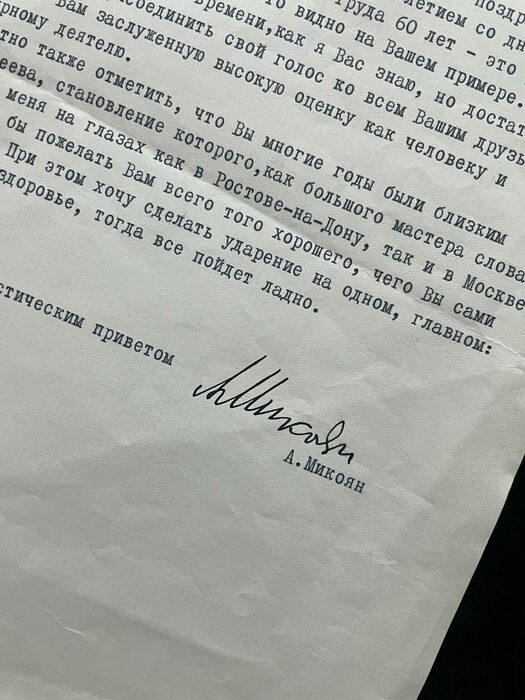 поздр
Труда 60 лет - это
это видно на Вашем примере.
времени,как я Вас знаю, но достат
соединить свой голос ко всем Вашим друзь
Вам заслуженную высокую оценку как человеку и
рному деятелю.
тно также отметить, что Вы многие годы были близким
еева, становление которого,как большого мастера слова
меня на глазах как в Ростове-на-Дону, так и в Москве
бы пожелать Вам всего того хорошего, чего Вы сами
При этом хочу сделать ударение на одном, главном:
здоровье, тогда все пойдет ладно.
стическим приветом
А.Микоян
А.Микоян